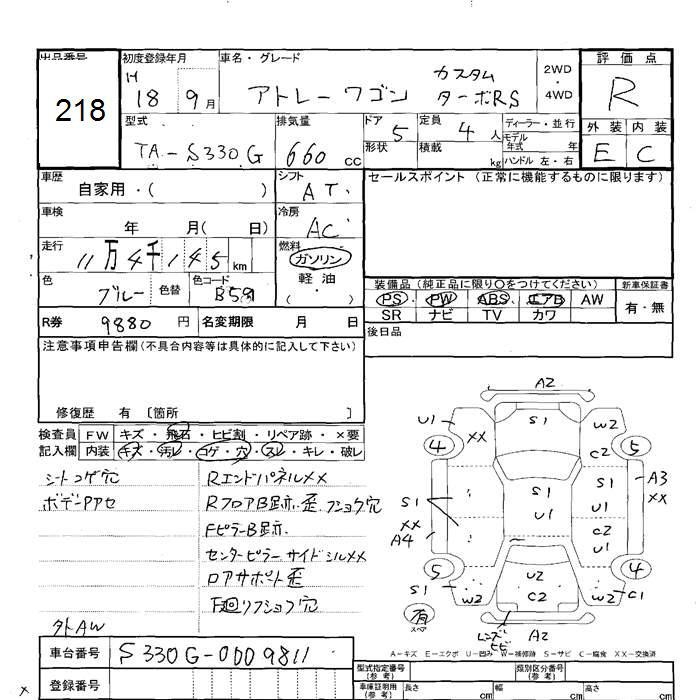 出品番号
218
初度登録年月
H
18 9月
車名・グレード
アトレーワゴン カスタム ターボRS
2WD
・
4WD
評価点
R
型式
TA-S330G
排気量
660 cc
ドア
5
形状
定員
4 人
積載
kg
ディーラー・並行
モデル
年式 年
ハンドル 左・右
外装 内装
E C
車歴
自家用・( )
シフト
AT
セールスポイント(正常に機能するものに限ります)
車検
年 月( 日)
冷房
AC
走行
11万4千145 km
燃料
ガソリン
軽油
( )
色
ブルー
色替
色コード
B59
装備品(純正品に限り○をつけてください)
新車保証書
PS PW ABS エアB AW
SR ナビ TV カワ
有・無
R券 9880 円
名変期限 月 日
後日品
注意事項申告欄(不具合内容等は具体的に記入して下さい)
修復歴 有〔箇所 〕
検査員
記入欄
FW キズ・飛石・ヒビ割・リペア跡・×要
内装 キズ・汚レ・コゲ・穴・スレ・キレ・破レ
シートコゲ穴
ボデーPアセ
RエンドパネルXX
RフロアB跡.歪.フショク穴
FピラーB跡.
センターピラーサイドシルXX
ロアサポート歪
下廻リフショク穴
外AW
A2
U1
XX
S1
W2
C2
4
5
S1
A3
XX
S1
XX
A4
U1
C2
U1
5
4
S1
W2
U2
C2
W2
C1
有
スペア
レンズヒビ
A2
A-キズ E-エクボ U-凹み W-補修跡 S-サビ C-腐食 XX-交換済
車台番号
S330G-0009811
登録番号
型式指定番号
(参考)
類別区分番号
(参考)
車庫証明用
(参考)
長さ cm
幅 cm
高さ cm